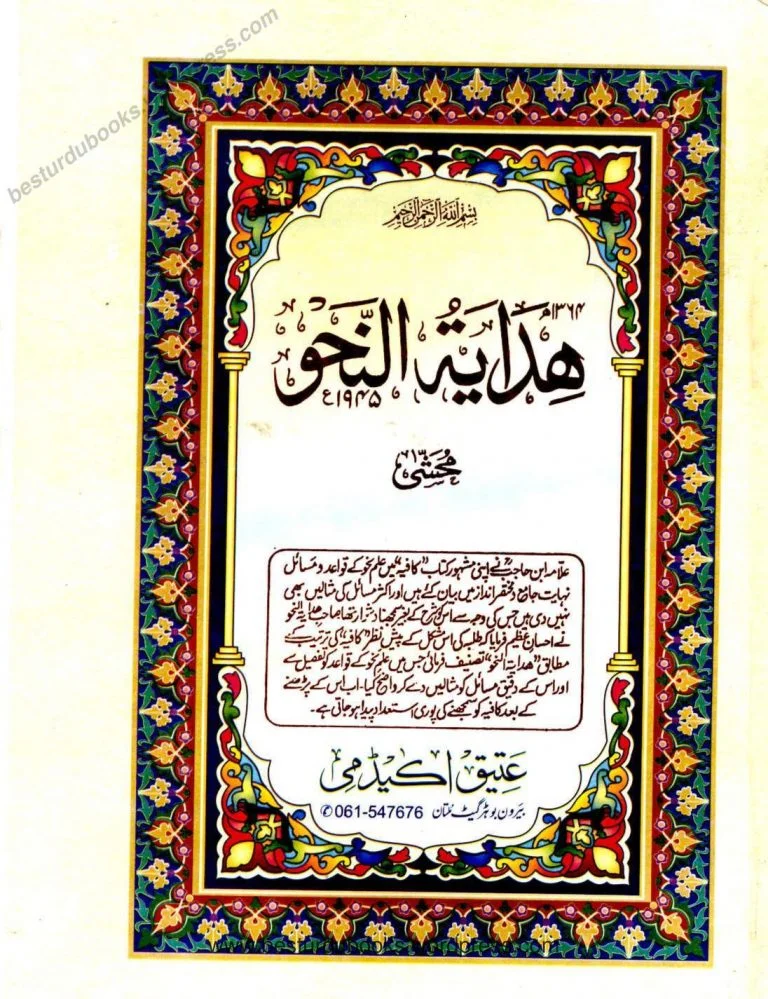 besturdubooks.wordpress.com
بسم اللہ الرحمن الرحیم
۱۳۶۴ھ
هِدَايَةُ النَّحْو
۱۹۴۵ع
مُحَشّٰی
علامہ ابن حاجبؒ نے اپنی مشہور کتاب "کافیہ" میں علم نحو کے قواعد و مسائل
نہایت جامع و مختصر انداز میں بیان کئے ہیں اور اکثر مسائل کی مثالیں بھی
نہیں دی ہیں جس کی وجہ سے اس کو شرح کے بغیر سمجھنا دشوار تھا صاحب ھدایۃ النحو
نے احسان عظیم فرمایا کہ طلبہ کی اس مشکل کے پیش نظر کافیہ ہی کی ترتیب کے
مطابق "ھدایۃ النحو" تصنیف فرمائی جس میں علم نحو کے قواعد کو تفصیل سے
اور اس کے دقیق مسائل کو مثالیں دے کر واضح کیا۔ اب اس کے پڑھنے
کے بعد کافیہ کو سمجھنے کی پوری استعداد پیدا ہو جاتی ہے۔
عتیق اکیڈمی
بیرون بوہڑ گیٹ ملتان 061-547676 ✆
www.besturdubooks.wordpress.com